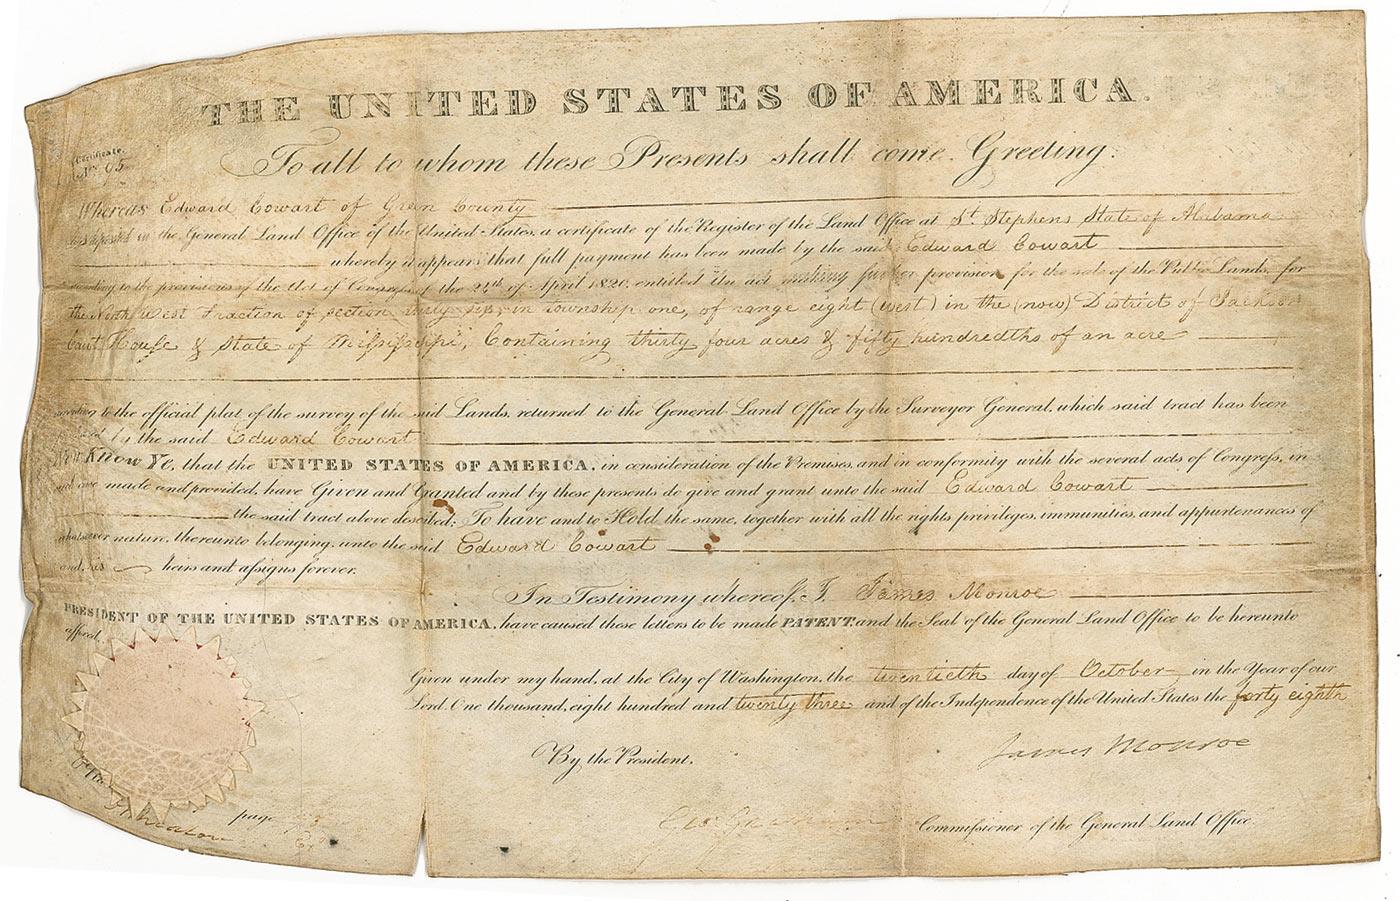 THE UNITED STATES OF AMERICA.
To all to whom these Presents shall come. Greeting:
Certificate.
No. 95
Whereas Edward Cowart of Green County
deposited in the General Land Office of the United States, a certificate of the Register of the Land Office at St. Stephens State of Alabama
whereby it appears that full payment has been made by the said Edward Cowart
according to the provisions of the Act of Congress of the 24th of April 1820, entitled An act making further provision for the sale of the Public Lands, for
the North West Fraction of section thirty six, in township one, of range eight (west) in the (now) District of Jackson
Court House & State of Mississippi, Containing thirty four acres & fifty hundredths of an acre
according to the official plat of the survey of the said Lands, returned to the General Land Office by the Surveyor General, which said tract has been
by the said Edward Cowart
Now Know Ye, that the UNITED STATES OF AMERICA, in consideration of the Premises, and in conformity with the several acts of Congress, in
such case made and provided, have Given and Granted and by these presents do give and grant unto the said Edward Cowart
the said tract above described; To have and to Hold the same, together with all the rights privileges, immunities, and appurtenances of
whatsoever nature, thereunto belonging, unto the said Edward Cowart
and his heirs and assigns forever.
In Testimony whereof, I James Monroe
PRESIDENT OF THE UNITED STATES OF AMERICA, have caused these letters to be made PATENT, and the Seal of the General Land Office to be hereunto
affixed.
Given under my hand, at the City of Washington, the twentieth day of October in the Year of our
Lord, One thousand, eight hundred and twenty three and of the Independence of the United States the forty eighth
James Monroe
By the President,
Geo: Graham Commissioner of the General Land Office.
page